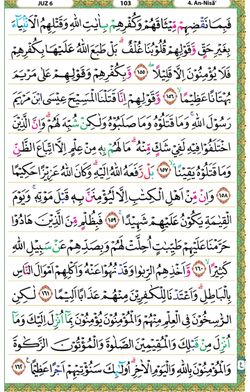 JUZ 6 103 4. An-Nisā'
فَبِمَا نَقْضِهِم مِّيثَاقَهُمْ وَكُفْرِهِم بِـَٔايَٰتِ ٱللَّهِ وَقَتْلِهِمُ ٱلْأَنۢبِيَآءَ
بِغَيْرِ حَقٍّ وَقَوْلِهِمْ قُلُوبُنَا غُلْفٌۢ ۚ بَلْ طَبَعَ ٱللَّهُ عَلَيْهَا بِكُفْرِهِمْ
فَلَا يُؤْمِنُونَ إِلَّا قَلِيلًا ١٥٥ وَبِكُفْرِهِمْ وَقَوْلِهِمْ عَلَىٰ مَرْيَمَ
بُهْتَٰنًا عَظِيمًا ١٥٦ وَقَوْلِهِمْ إِنَّا قَتَلْنَا ٱلْمَسِيحَ عِيسَى ٱبْنَ مَرْيَمَ
رَسُولَ ٱللَّهِ وَمَا قَتَلُوهُ وَمَا صَلَبُوهُ وَلَٰكِن شُبِّهَ لَهُمْ ۚ وَإِنَّ ٱلَّذِينَ
ٱخْتَلَفُوا۟ فِيهِ لَفِى شَكٍّ مِّنْهُ ۚ مَا لَهُم بِهِۦ مِنْ عِلْمٍ إِلَّا ٱتِّبَاعَ ٱلظَّنِّ ۚ
وَمَا قَتَلُوهُ يَقِينًۢا ١٥٧ بَل رَّفَعَهُ ٱللَّهُ إِلَيْهِ ۚ وَكَانَ ٱللَّهُ عَزِيزًا حَكِيمًا
١٥٨ وَإِن مِّنْ أَهْلِ ٱلْكِتَٰبِ إِلَّا لَيُؤْمِنَنَّ بِهِۦ قَبْلَ مَوْتِهِۦ ۖ وَيَوْمَ
ٱلْقِيَٰمَةِ يَكُونُ عَلَيْهِمْ شَهِيدًا ١٥٩ فَبِظُلْمٍ مِّنَ ٱلَّذِينَ هَادُوا۟
حَرَّمْنَا عَلَيْهِمْ طَيِّبَٰتٍ أُحِلَّتْ لَهُمْ وَبِصَدِّهِمْ عَن سَبِيلِ ٱللَّهِ
كَثِيرًا ١٦٠ وَأَخْذِهِمُ ٱلرِّبَوٰا۟ وَقَدْ نُهُوا۟ عَنْهُ وَأَكْلِهِمْ أَمْوَٰلَ ٱلنَّاسِ
بِٱلْبَٰطِلِ ۚ وَأَعْتَدْنَا لِلْكَٰفِرِينَ مِنْهُمْ عَذَابًا أَلِيمًا ١٦١ لَّٰكِنِ
ٱلرَّٰسِخُونَ فِى ٱلْعِلْمِ مِنْهُمْ وَٱلْمُؤْمِنُونَ يُؤْمِنُونَ بِمَآ أُنزِلَ إِلَيْكَ وَمَآ
أُنزِلَ مِن قَبْلِكَ ۚ وَٱلْمُقِيمِينَ ٱلصَّلَوٰةَ ۚ وَٱلْمُؤْتُونَ ٱلزَّكَوٰةَ
وَٱلْمُؤْمِنُونَ بِٱللَّهِ وَٱلْيَوْمِ ٱلْـَٔاخِرِ أُو۟لَٰٓئِكَ سَنُؤْتِيهِمْ أَجْرًا عَظِيمًا ١٦٢